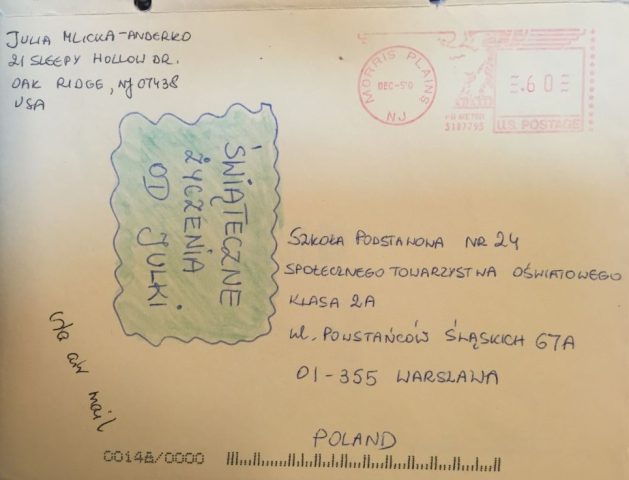 JULIA MLICKA-ANDERKO
21 SLEEPY HOLLOW DR.
OAK RIDGE, NJ 07438
USA
MORRIS PLAINS
NJ
PB METER
3187795
.60
U.S. POSTAGE
ŚWIĄTECZNE
ŻYCZENIA
OD JULKI
SZKOŁA PODSTAWOWA NR 24
SPOŁECZNEGO TOWARZYSTWA OŚWIATOWEGO
KLASA 2A
ul. POWSTAŃCÓW ŚLĄSKICH 67A
01-355 WARSZAWA
POLAND
via air mail
0014A/0000